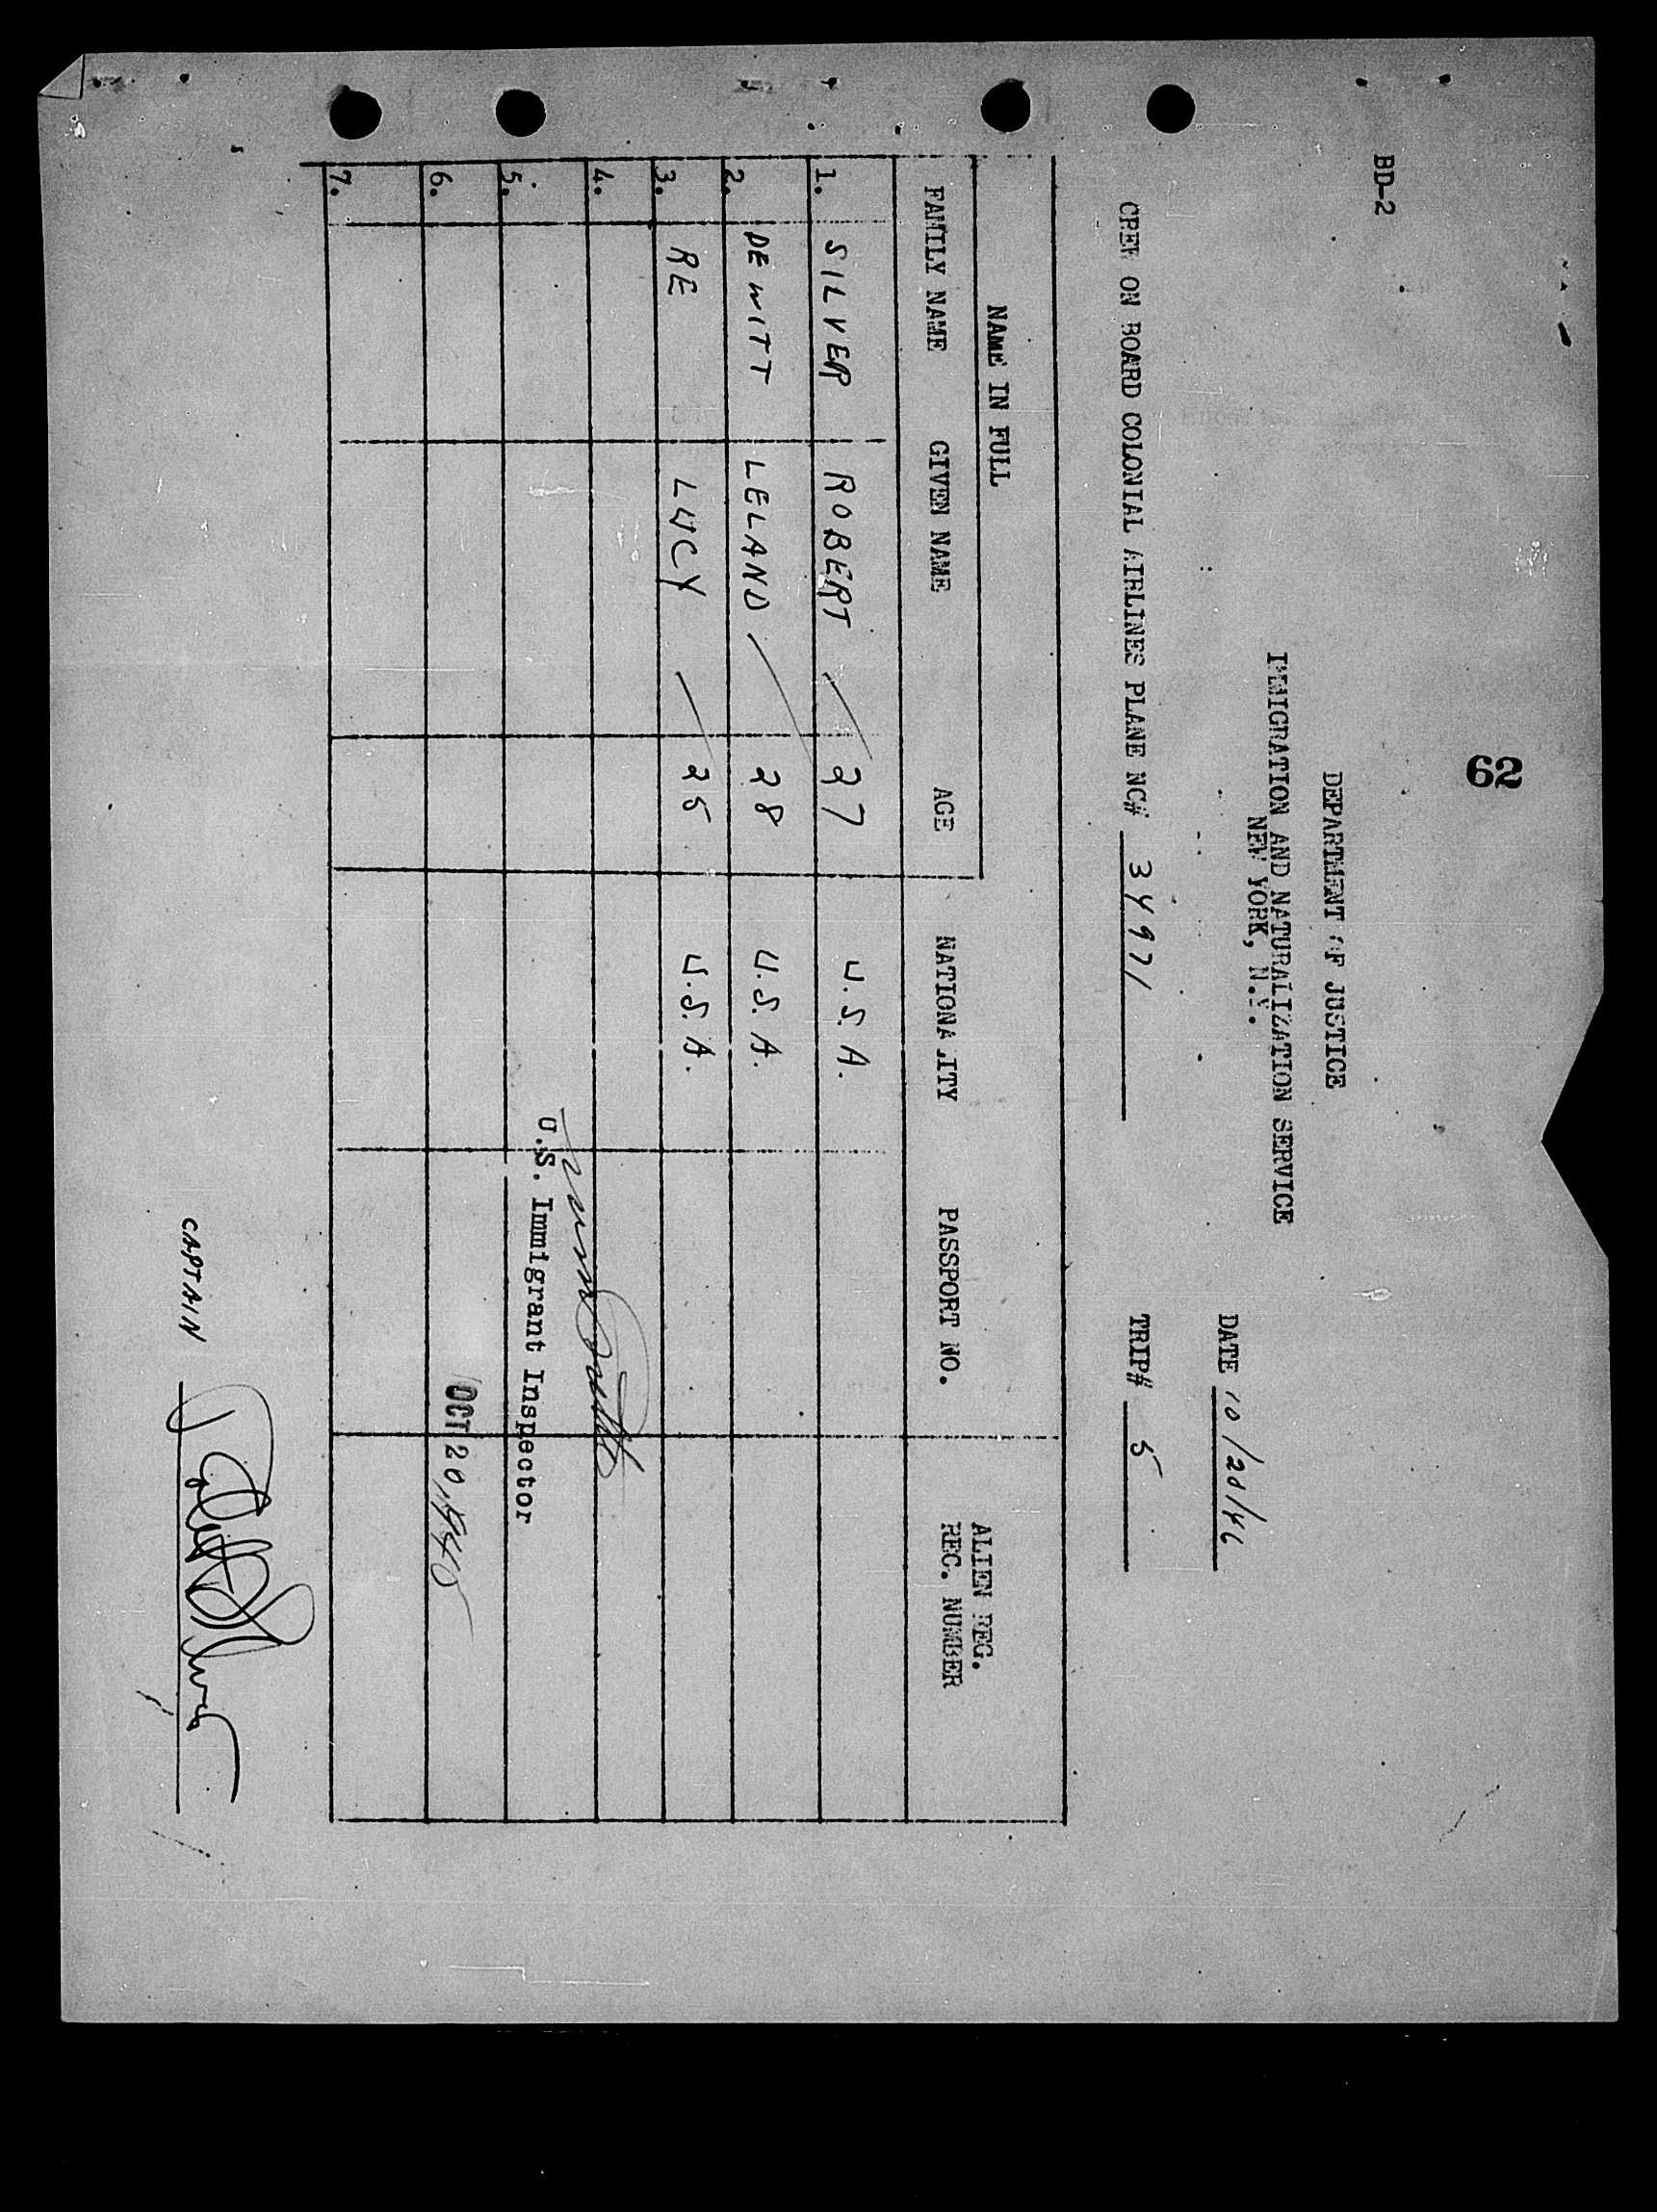 62
BD-2
DEPARTMENT OF JUSTICE
IMMIGRATION AND NATURALIZATION SERVICE
NEW YORK, N.Y.
DATE 10/20/46
CREW ON BOARD COLONIAL AIRLINES PLANE NC# 34971 TRIP# 5
NAME IN FULL
ALIEN REG.
FAMILY NAME GIVEN NAME AGE NATIONALITY PASSPORT NO. REC. NUMBER
1. SILVER ROBERT 27 U.S.A.
2. DEWITT LELAND 28 U.S.A.
3. RE LUCY 25 U.S.A.
4.
5. U.S. Immigrant Inspector
6. OCT 20
7.
CAPTAIN Robert Silver